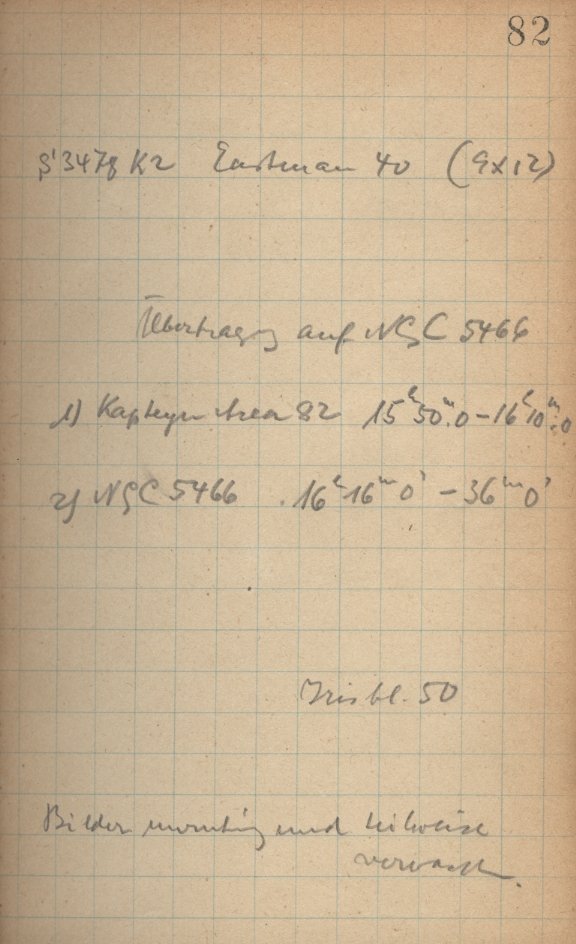 82
S'3478 K2 Eastman 40 (9x12)
Übertragung auf NGC 5466
1) Kapteyn Area 82 15ʰ50ᵐ.0 – 16ʰ10ᵐ.0
2) NGC 5466 16ʰ16ᵐ0ˢ – 36ᵐ0ˢ
Irisbl. 50
Bilder unruhig und teilweise